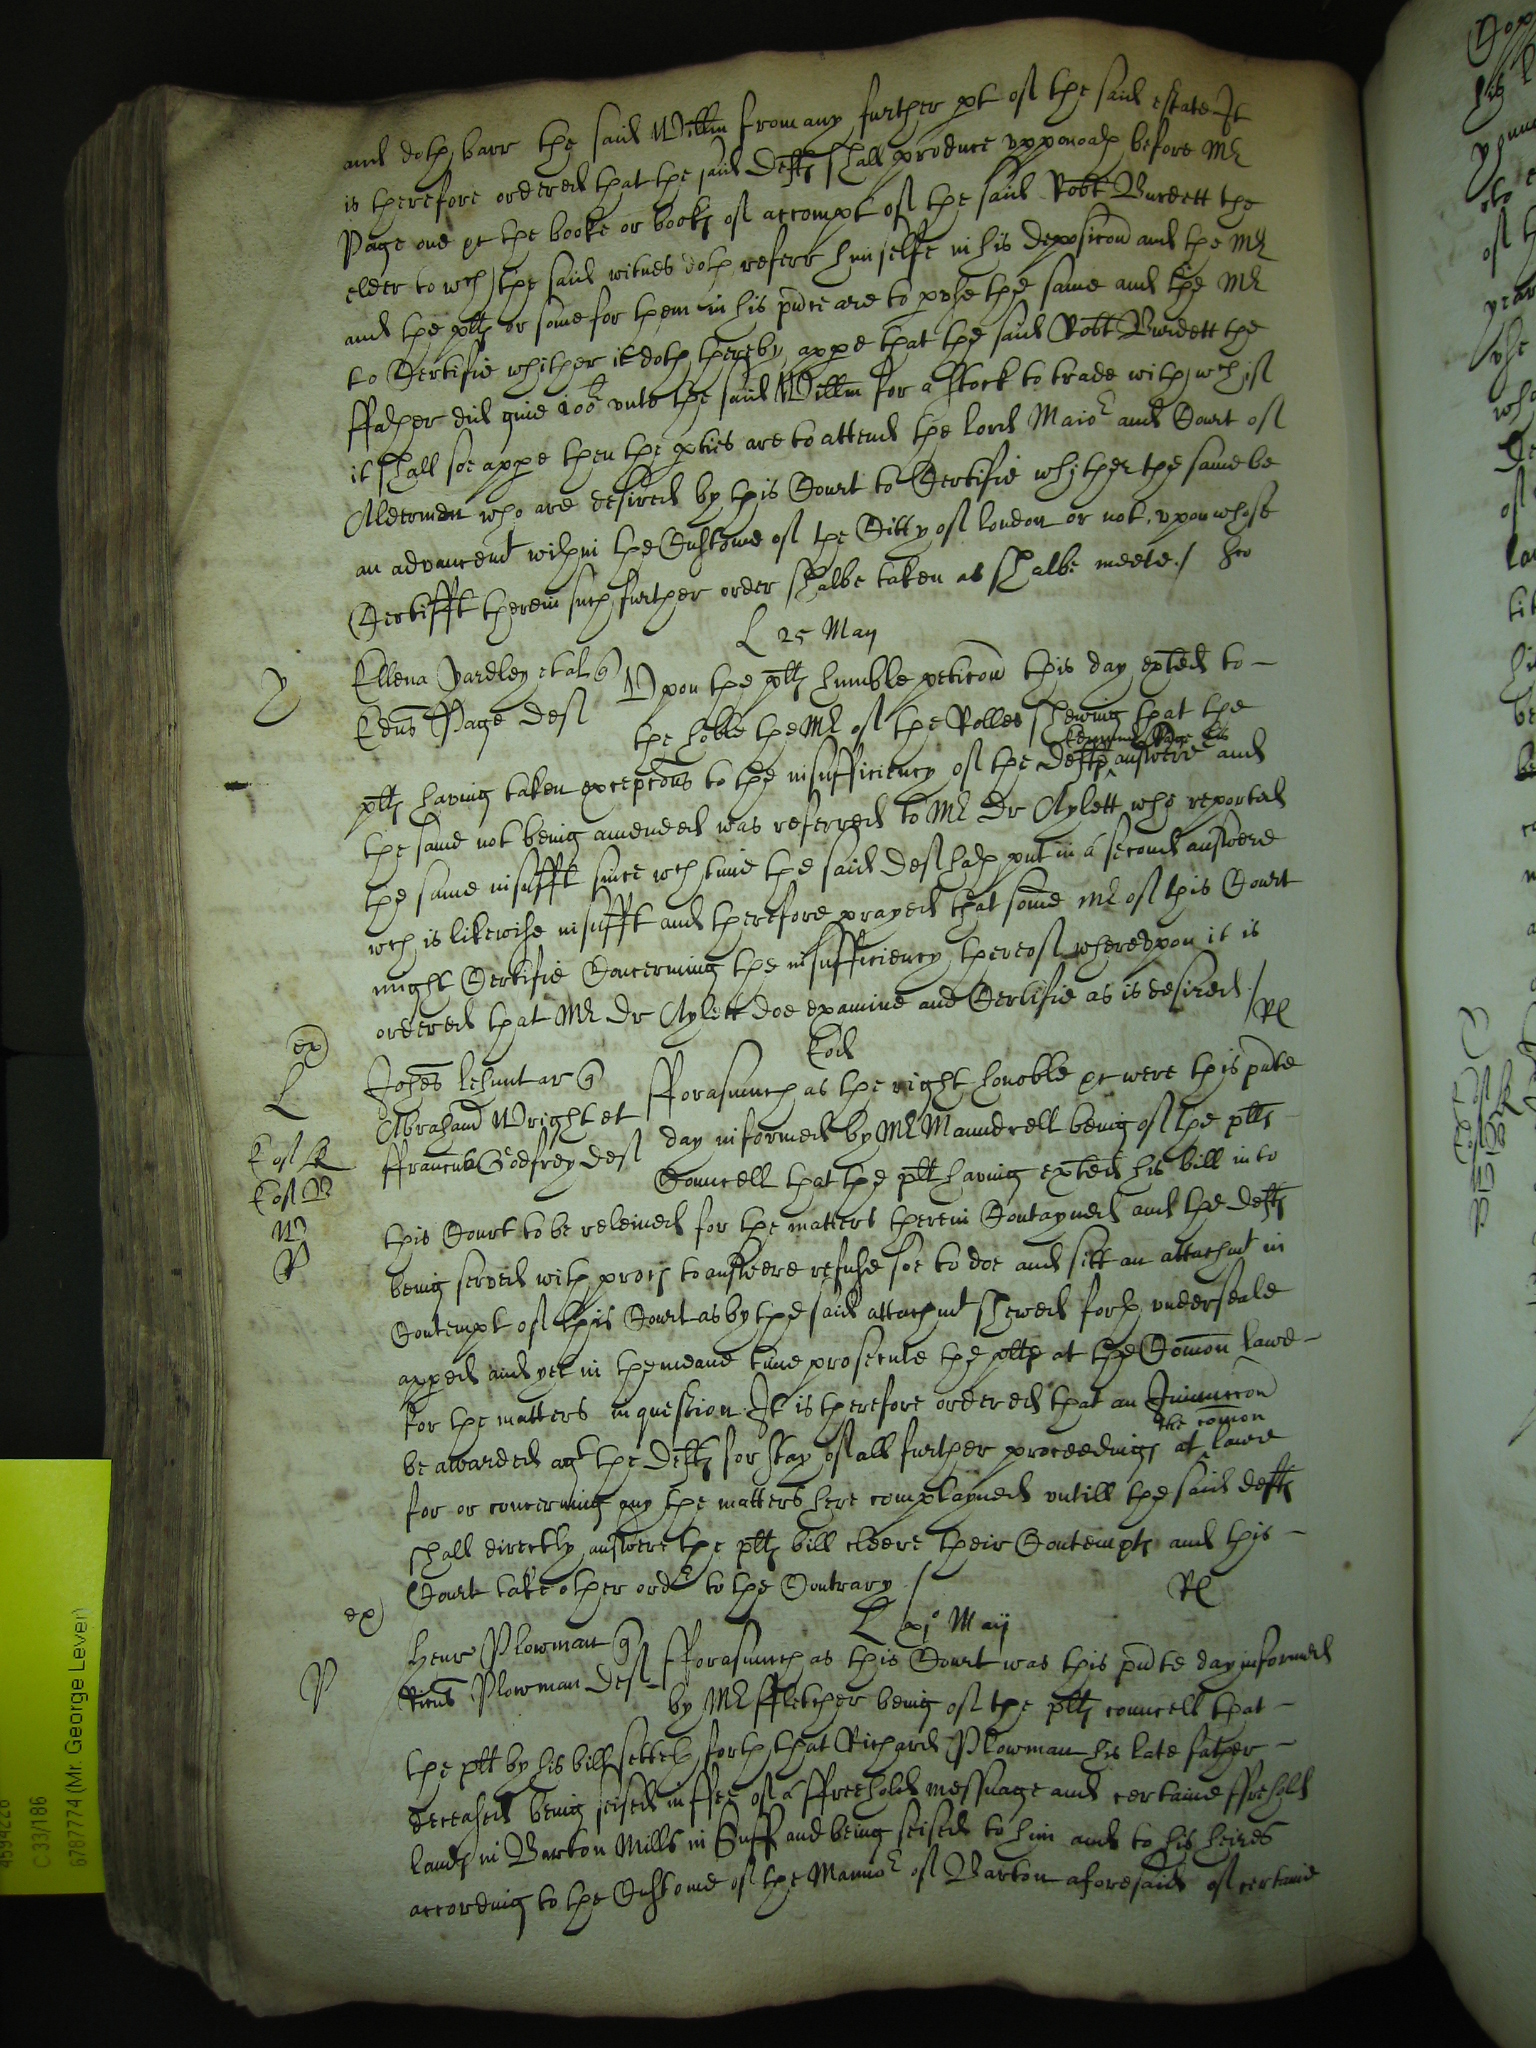 and doth barr the said Willm from any further pt of the said estate It
is therefore ordered that the said Deftℯ shall produce uppon oath before Mr
Page one &c the booke or bookℯ of accompt of the said Robt Burdett the
elder to wch the said witnes doth referr himselfe in his deposicon and the Mr
and the pltℯ or some for them in his pnce are to pvse the same and the Mr
to Certifie whither it doth thereby appe that the said Robt Burdett the
ffather did give 100l unto the said Willm for a stock to trade with, wch if
it shall soe appe then the pties are to attend the lord Maior and Court of
Aldermen who are desired by this Court to Certifie whither the same be
an advancemt within the Custome of the Citty of london or not, upon whose
Certifft therein such further order shalbe taken as shalbe meete./
L 25 May
Y
Ellena Yardley et al q
Edus Page Def
Upon the pltℯ humble peticon this day exhted to -
the hoble the Mr of the Rolles shewing that the
Edmund Page his
pltℯ having taken excepcons to the insufficiency of the deftℯ answere and
the same not being amended was referred to Mr Dr Aylett who reported
the same insufft since wch time the said def hath put in a second answere
wch is likewise insufft and therefore prayed that some Mr of this Court
might Certifie Concerning the insufficiency thereof whereupon it is
ordered that Mr Dr Aylett doe examine and Certifie as is desired./
Rl
ex
Eod
L
Johes lehunt ar q
Abraham Wright et
ffrancus Godfrey def
Forasmuch as the right honoble &c were this pnte
day informed by Mr Maundrell being of the pltℯ
Councell that the plt having exhted his bill into
W
P
this Court to be releived for the matters therein Contayned and the deftℯ
being served with proces to answere refuse soe to doe and sitt an attachmt in
Contempt of this Court as by the said attachmt shewed forth under seale
apped and yet in the meane time prosecute the pltℯ at the Comon lawe -
for the matters in question. It is therefore ordered that an Iniunccon
the comon
be awarded agt the deftℯ for stay of all further proceedingℯ at lawe
for or concerning any the matters here complayned untill the said deftℯ
shall directly answere the pltℯ bill cleere their Contemptℯ and this -
Court take other order to the Contrary./
Rl
ex
L xio Maij
P
Henr Plowman q
Ricus Plowman def
Forasmuch as this Court was this pnte day informed
by Mr ffletcher being of the pltℯ councell that -
the plt by his bill setteth forth that Richard Plowman his late father -
deceased being seised in ffee of a ffreehold messuage and certaine ffrehold
landℯ in Barton Mills in Suff and being seised to him and to his heires
according to the Custome of the Mannor of Barton aforesaid of certaine
4594226
C 33/186
6787774 (Mr. George Lever)